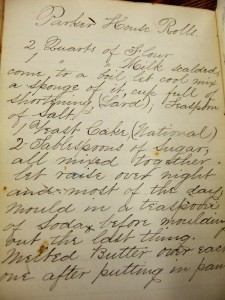 Parker House Rolls.
2 Quarts of Flour
1 " " Milk scalded
come to a boil, let cool mix
a sponge of it, cup full of
shortening, (Lard), 1 Teaspoon
of Salt.
1 Yeast Cake, (National)
2 Tablespoons of Sugar,
all mixed together.
let raise over night
and most of the day
mould in a teaspoon
of Soda before moulding
out the last thing.
Melted Butter over each
one after putting in pan